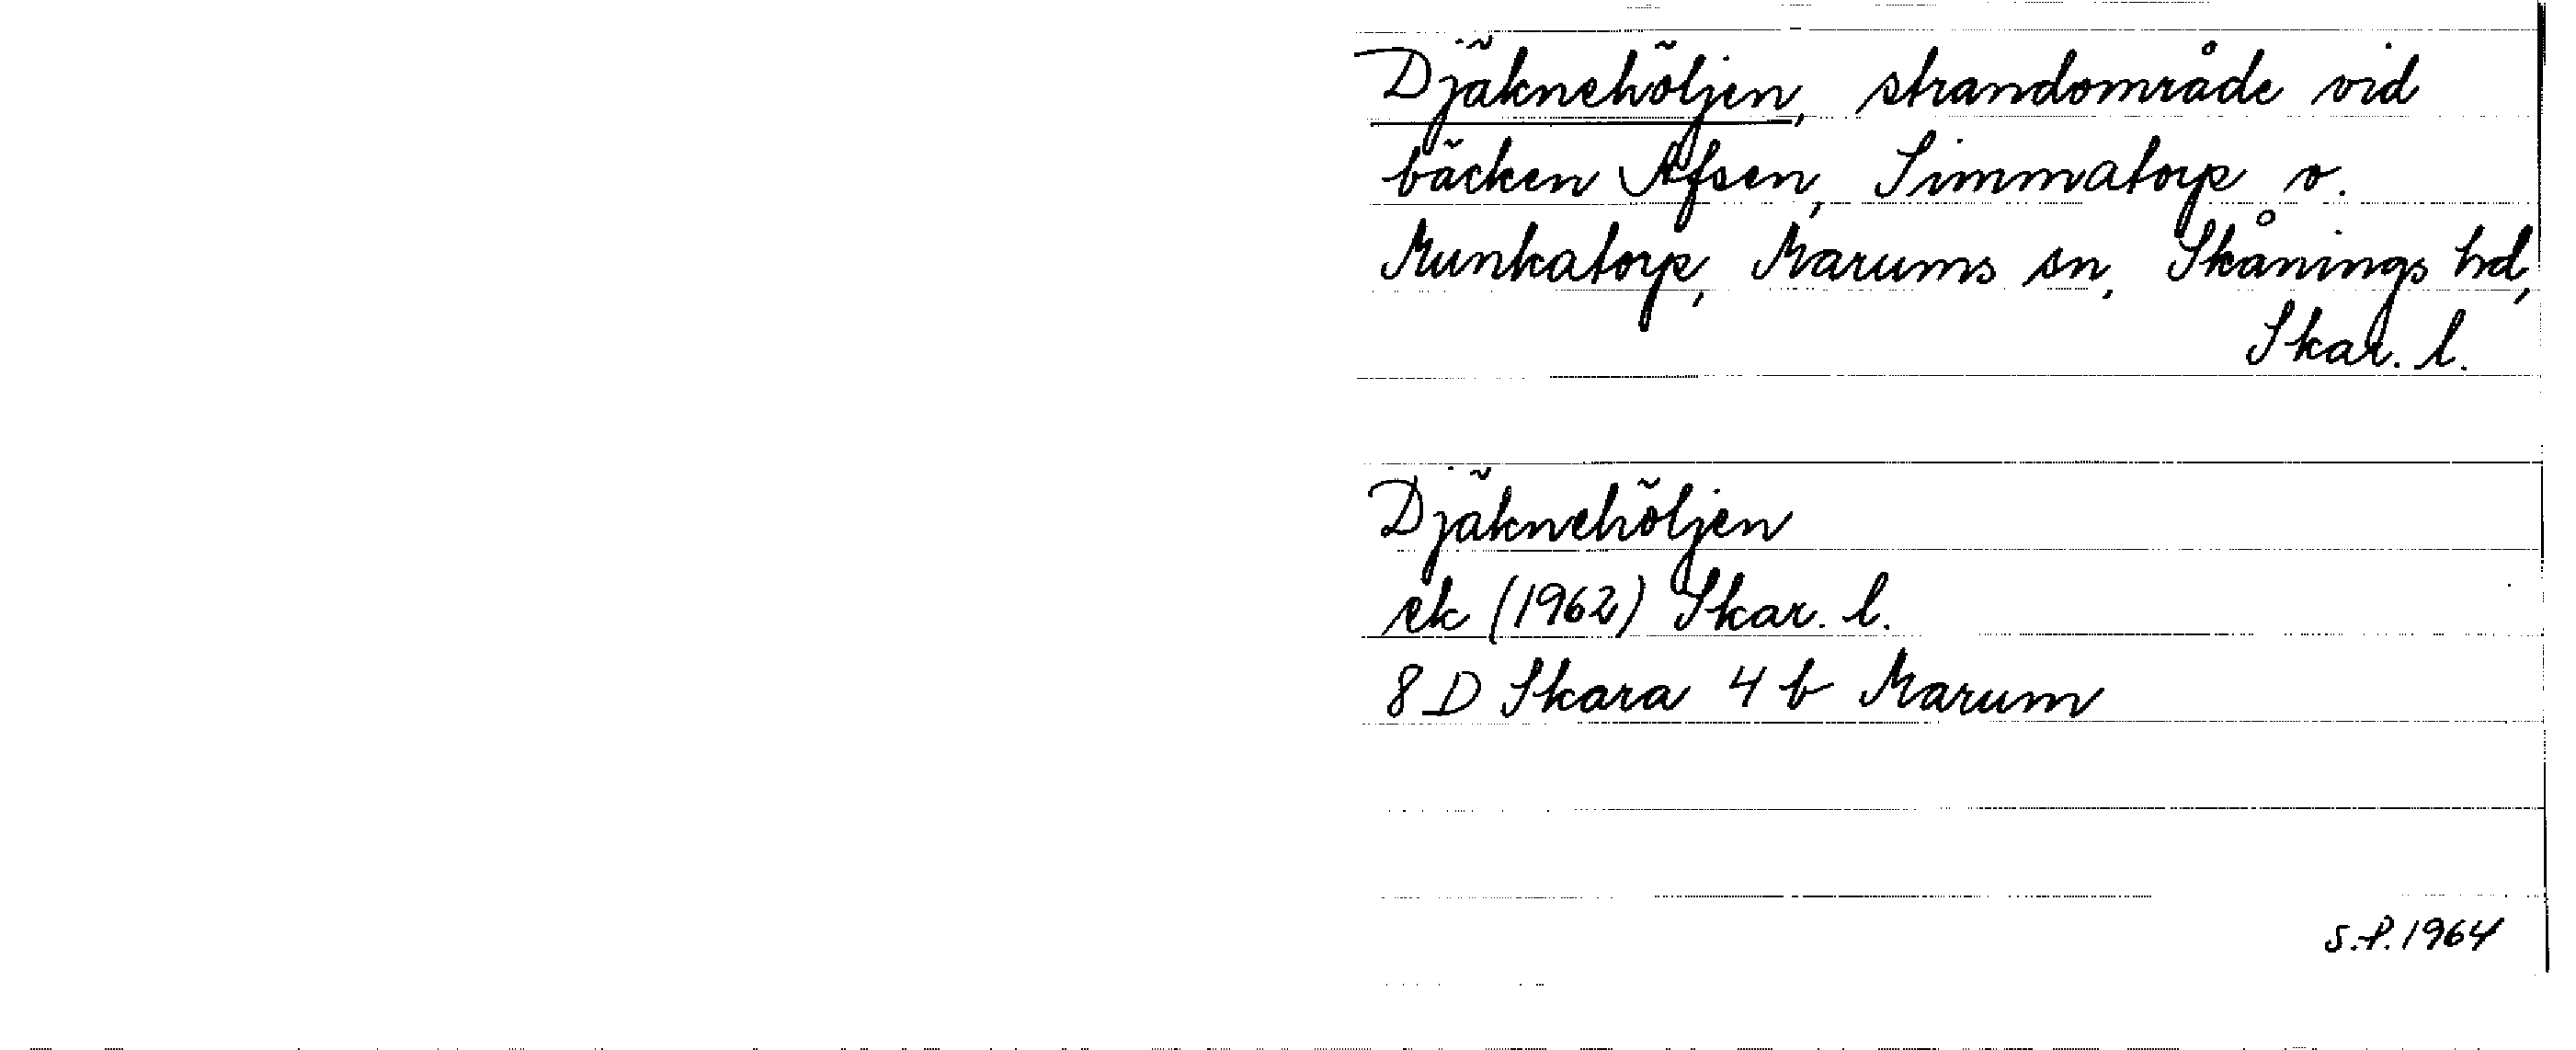 Djäknehöljen, strandområde vid
bäcken Afsen, Simmatorp o.
Munkatorp, Marums sn, Skånings hd,
Skar. l.
Djäknehöljen
ek (1962) Skar. l.
8 D Skara 4 b Marum
S.P. 1964